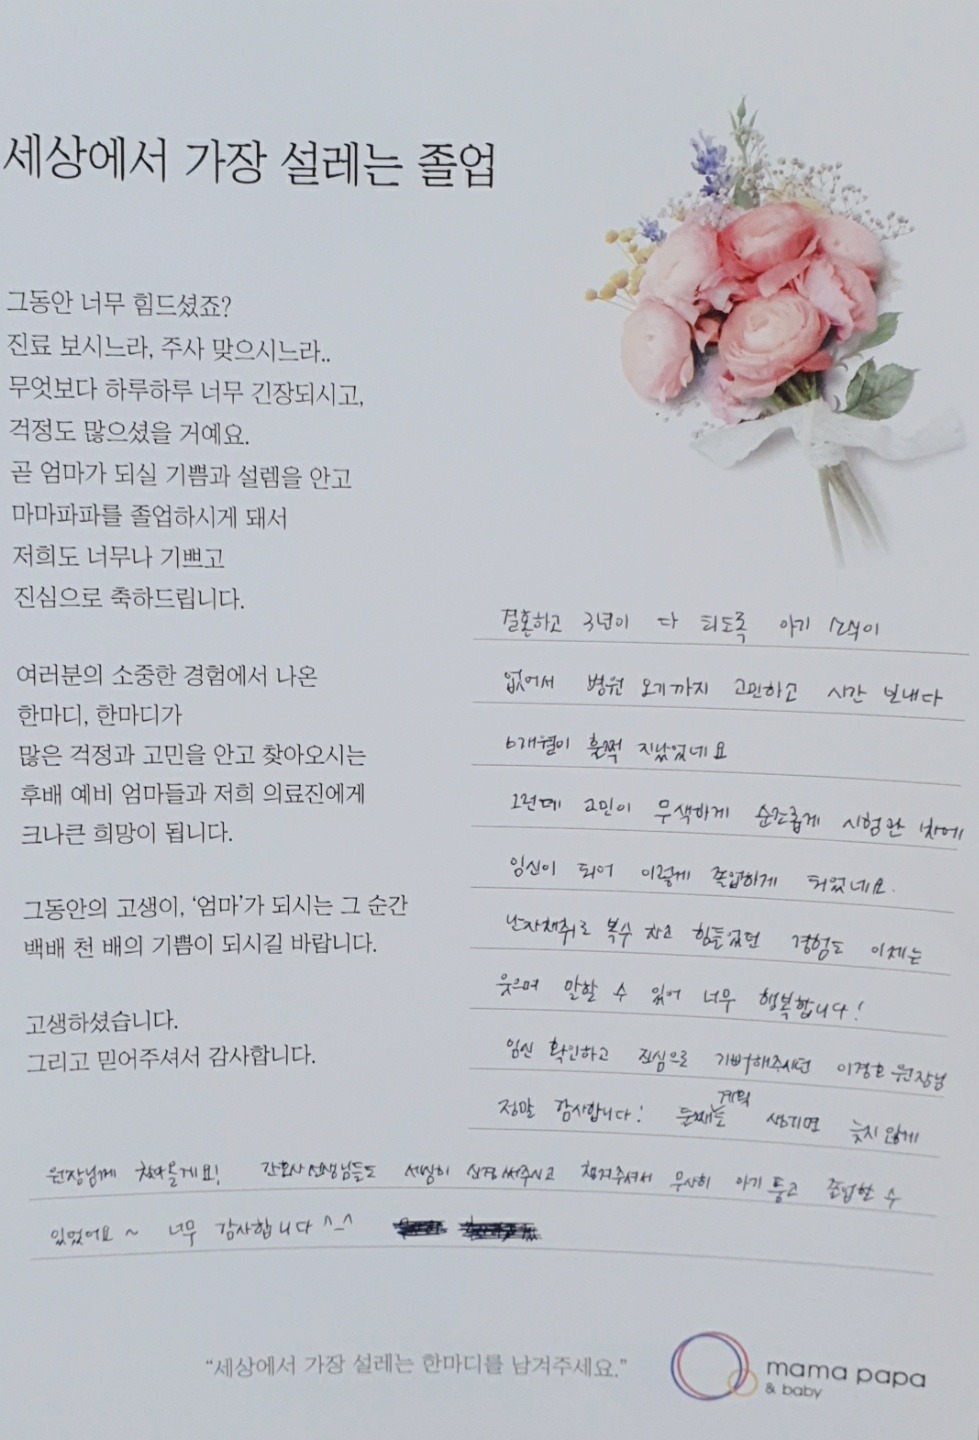 세상에서 가장 설레는 졸업
그동안 너무 힘드셨죠?
진료 보시느라, 주사 맞으시느라..
무엇보다 하루하루 너무 긴장되시고,
걱정도 많으셨을 거예요.
곧 엄마가 되실 기쁨과 설렘을 안고
마마파파를 졸업하시게 돼서
저희도 너무나 기쁘고
진심으로 축하드립니다.
여러분의 소중한 경험에서 나온
한마디, 한마디가
많은 걱정과 고민을 안고 찾아오시는
후배 예비 엄마들과 저희 의료진에게
크나큰 희망이 됩니다.
그동안의 고생이, ‘엄마’가 되시는 그 순간
백배 천 배의 기쁨이 되시길 바랍니다.
고생하셨습니다.
그리고 믿어주셔서 감사합니다.
결혼하고 3년이 다 되도록 아기 소식이
없어서 병원 오기까지 고민하고 시간 보내다
6개월이 훌쩍 지났었네요
그런데 고민이 무색하게 순조롭게 시험관 1차에
임신이 되어 이렇게 졸업하게 되었네요.
난자채취로 복수 차고 힘들었던 경험도 이제는
웃으며 말할 수 있어 너무 행복합니다!
임신 확인하고 진심으로 기뻐해주시던 이경호 원장님
정말 감사합니다! 둘째도 계획 생기면 늦지 않게
원장님께 찾아올게요! 간호사 선생님들도 세심히 신경써주시고 챙겨주셔서 무사히 아기 품고 졸업할 수
있었어요 ~ 너무 감사합니다 ^_^
“세상에서 가장 설레는 한마디를 남겨주세요.”
mama papa
& baby